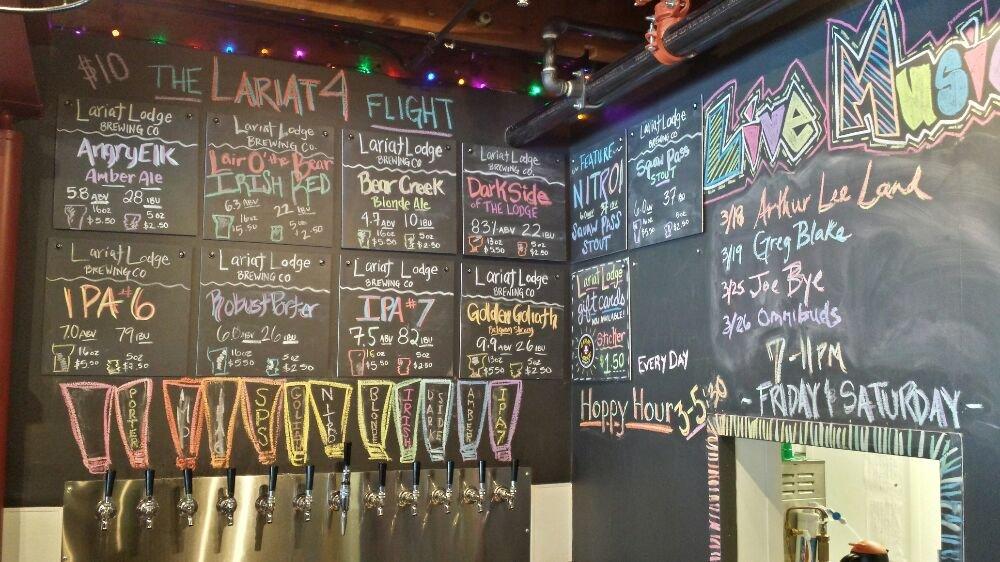 $10 THE LARIAT 4 FLIGHT
Lariat Lodge
BREWING CO
AngryElk
Amber Ale
5.8 ABV 28 IBU
16oz 5oz
$5.50 $2.50
Lariat Lodge
BREWING CO.
Lair O' the Bear
IRISH RED
6.3 ABV 22 IBU
16oz 5oz
$5.50 $2.50
Lariat Lodge
BREWING CO.
Bear Creek
Blonde Ale
4.7 ABV 10 IBU
16oz 5oz
$5.50 $2.50
Lariat Lodge
BREWING CO.
DarkSide
OF THE LODGE
8.37 ABV 22 IBU
13oz 5oz
$5.50 $2.50
Lariat Lodge
BREWING CO
IPA #6
7.0 ABV 79 IBU
16oz 5oz
$5.50 $2.50
Lariat Lodge
BREWING CO.
RobustPorter
6.0 ABV 26 IBU
16oz 5oz
$5.50 $2.50
Lariat Lodge
BREWING CO.
IPA #7
7.5 ABV 82 IBU
16oz 5oz
$5.50 $2.50
Lariat Lodge
BREWING CO.
Golden Goliath
Belgian Strong
9.9 ABV 26 IBU
13oz 5oz
$5.50 $2.50
PORTER
SPS
GOLIATH
NITRO
BLONDE
IRISH
DARK
SIDE
AMBER
IPA 7
FEATURE
NITRO!
SQUAW PASS
STOUT
Lariat Lodge
BREWING CO
SQUAW PASS
STOUT
37 IBU
6.0 ABV
16oz 5oz
$5.50 $2.50
Lariat Lodge
gift cards
NOW AVAILABLE!
Sticker
$1.50
EVERY DAY
Hoppy Hour 3-5:30
Live Music
3/18 Arthur Lee Land
3/19 Greg Blake
3/25 Joe Bye
3/26 Omnibuds
7-11PM
- FRIDAY & SATURDAY -